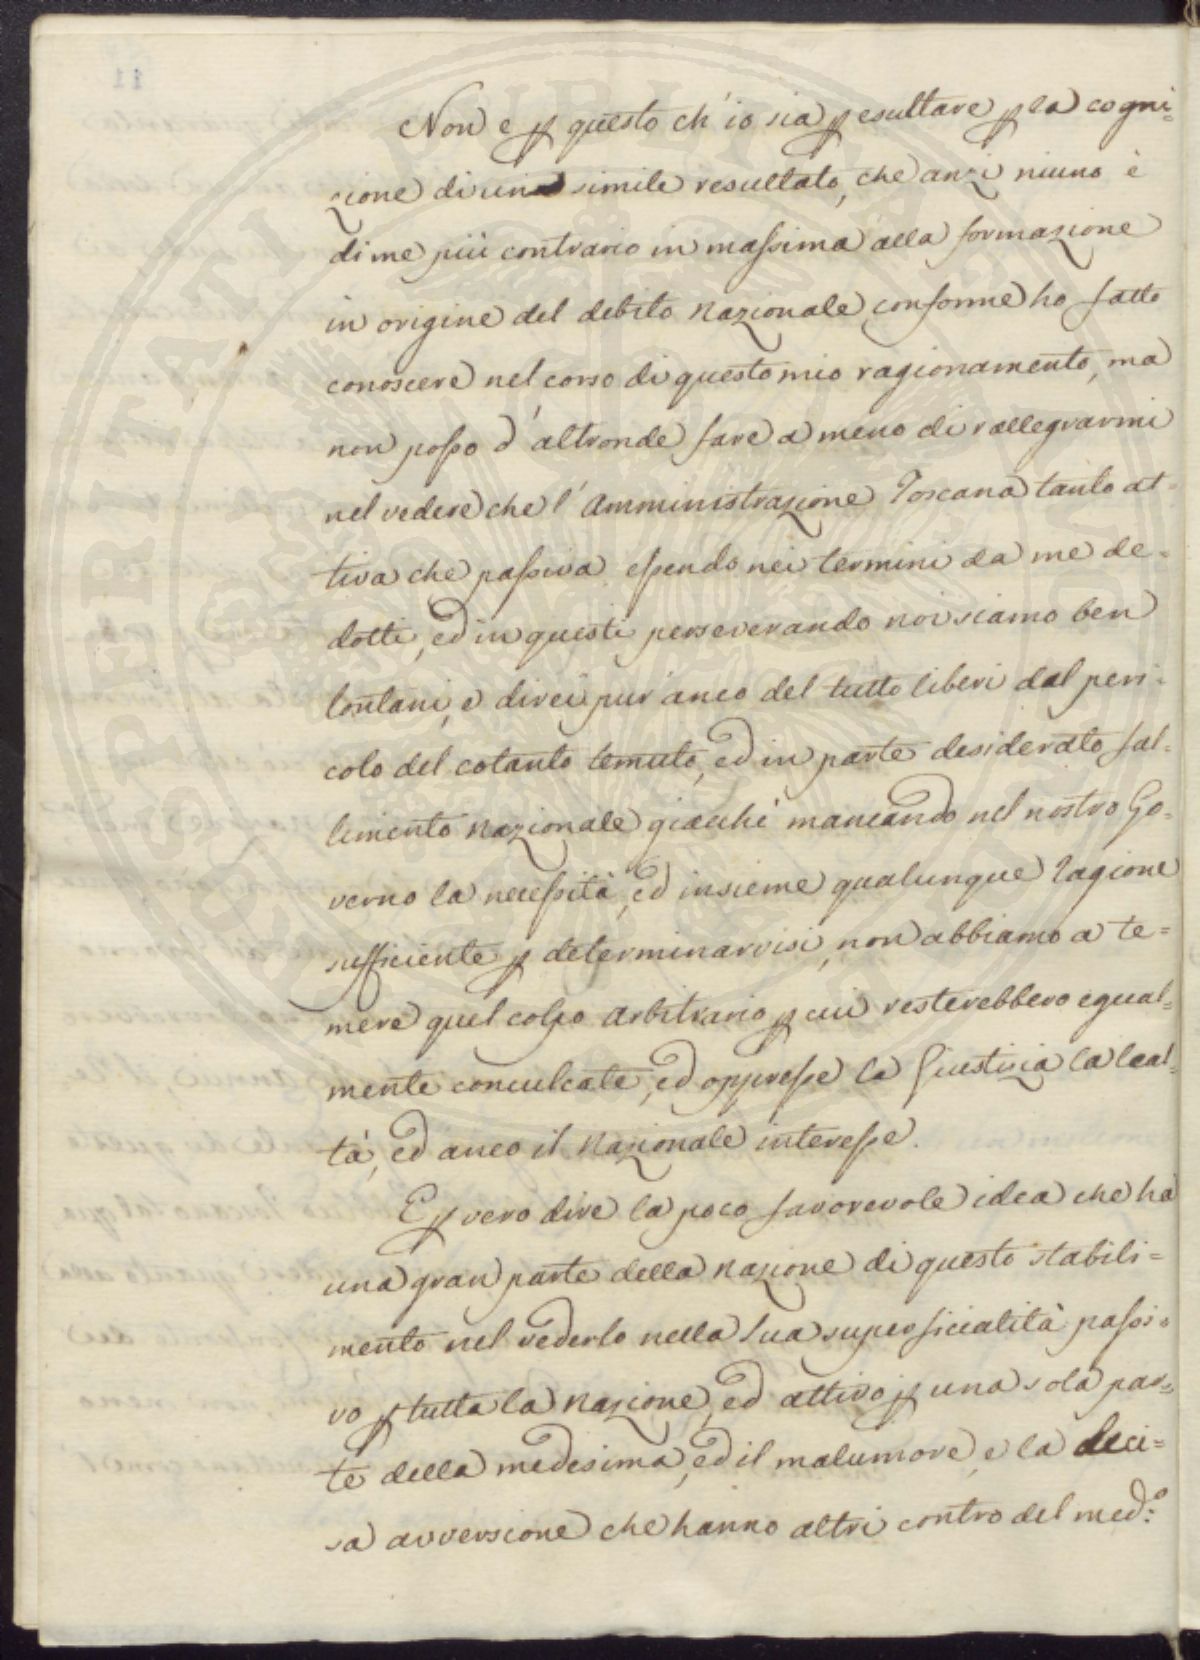 Non e ꝑ questo ch' io sia ꝑ esultare ꝑ la cogni=
zione di una simile resultato, che anzi niuno è
di me più contrario in massima alla formazione
in origine del debito Nazionale conforme ho fatto
conoscere nel corso di questo mio ragionamento, ma
non posso d' altronde fare a meno di rallegrarmi
nel vedere che l' Amministrazione Toscana tanto at=
tiva che passiva essendo nei termini da me de=
dotti, ed in questi perseverando noi siamo ben
lontani, e direi pur' anco del tutto liberi dal peri=
colo del cotanto temuto, ed in parte desiderato fal=
limento Nazionale giacchè mancando nel nostro Go=
verno la necessità, ed insieme qualunque ragione
sufficiente ꝑ determinarvisi, non abbiamo a te=
mere quel colpo arbitrario ꝑ cui resterebbero egual=
mente conculcate, ed oppresse la Giustizia la leal=
tà, ed anco il Nazionale interesse.
E ꝑ vero dire la poco favorevole idea che ha
una gran parte della Nazione di questo stabili=
mento nel vederlo nella sua superficialità passi=
vo ꝑ tutta la Nazione, ed attivo ꝑ una sola par=
te della medesima, ed il malumore, e la deci=
sa avversione che hanno altri contro del med:º
SPERITATI PUBLICAE
11